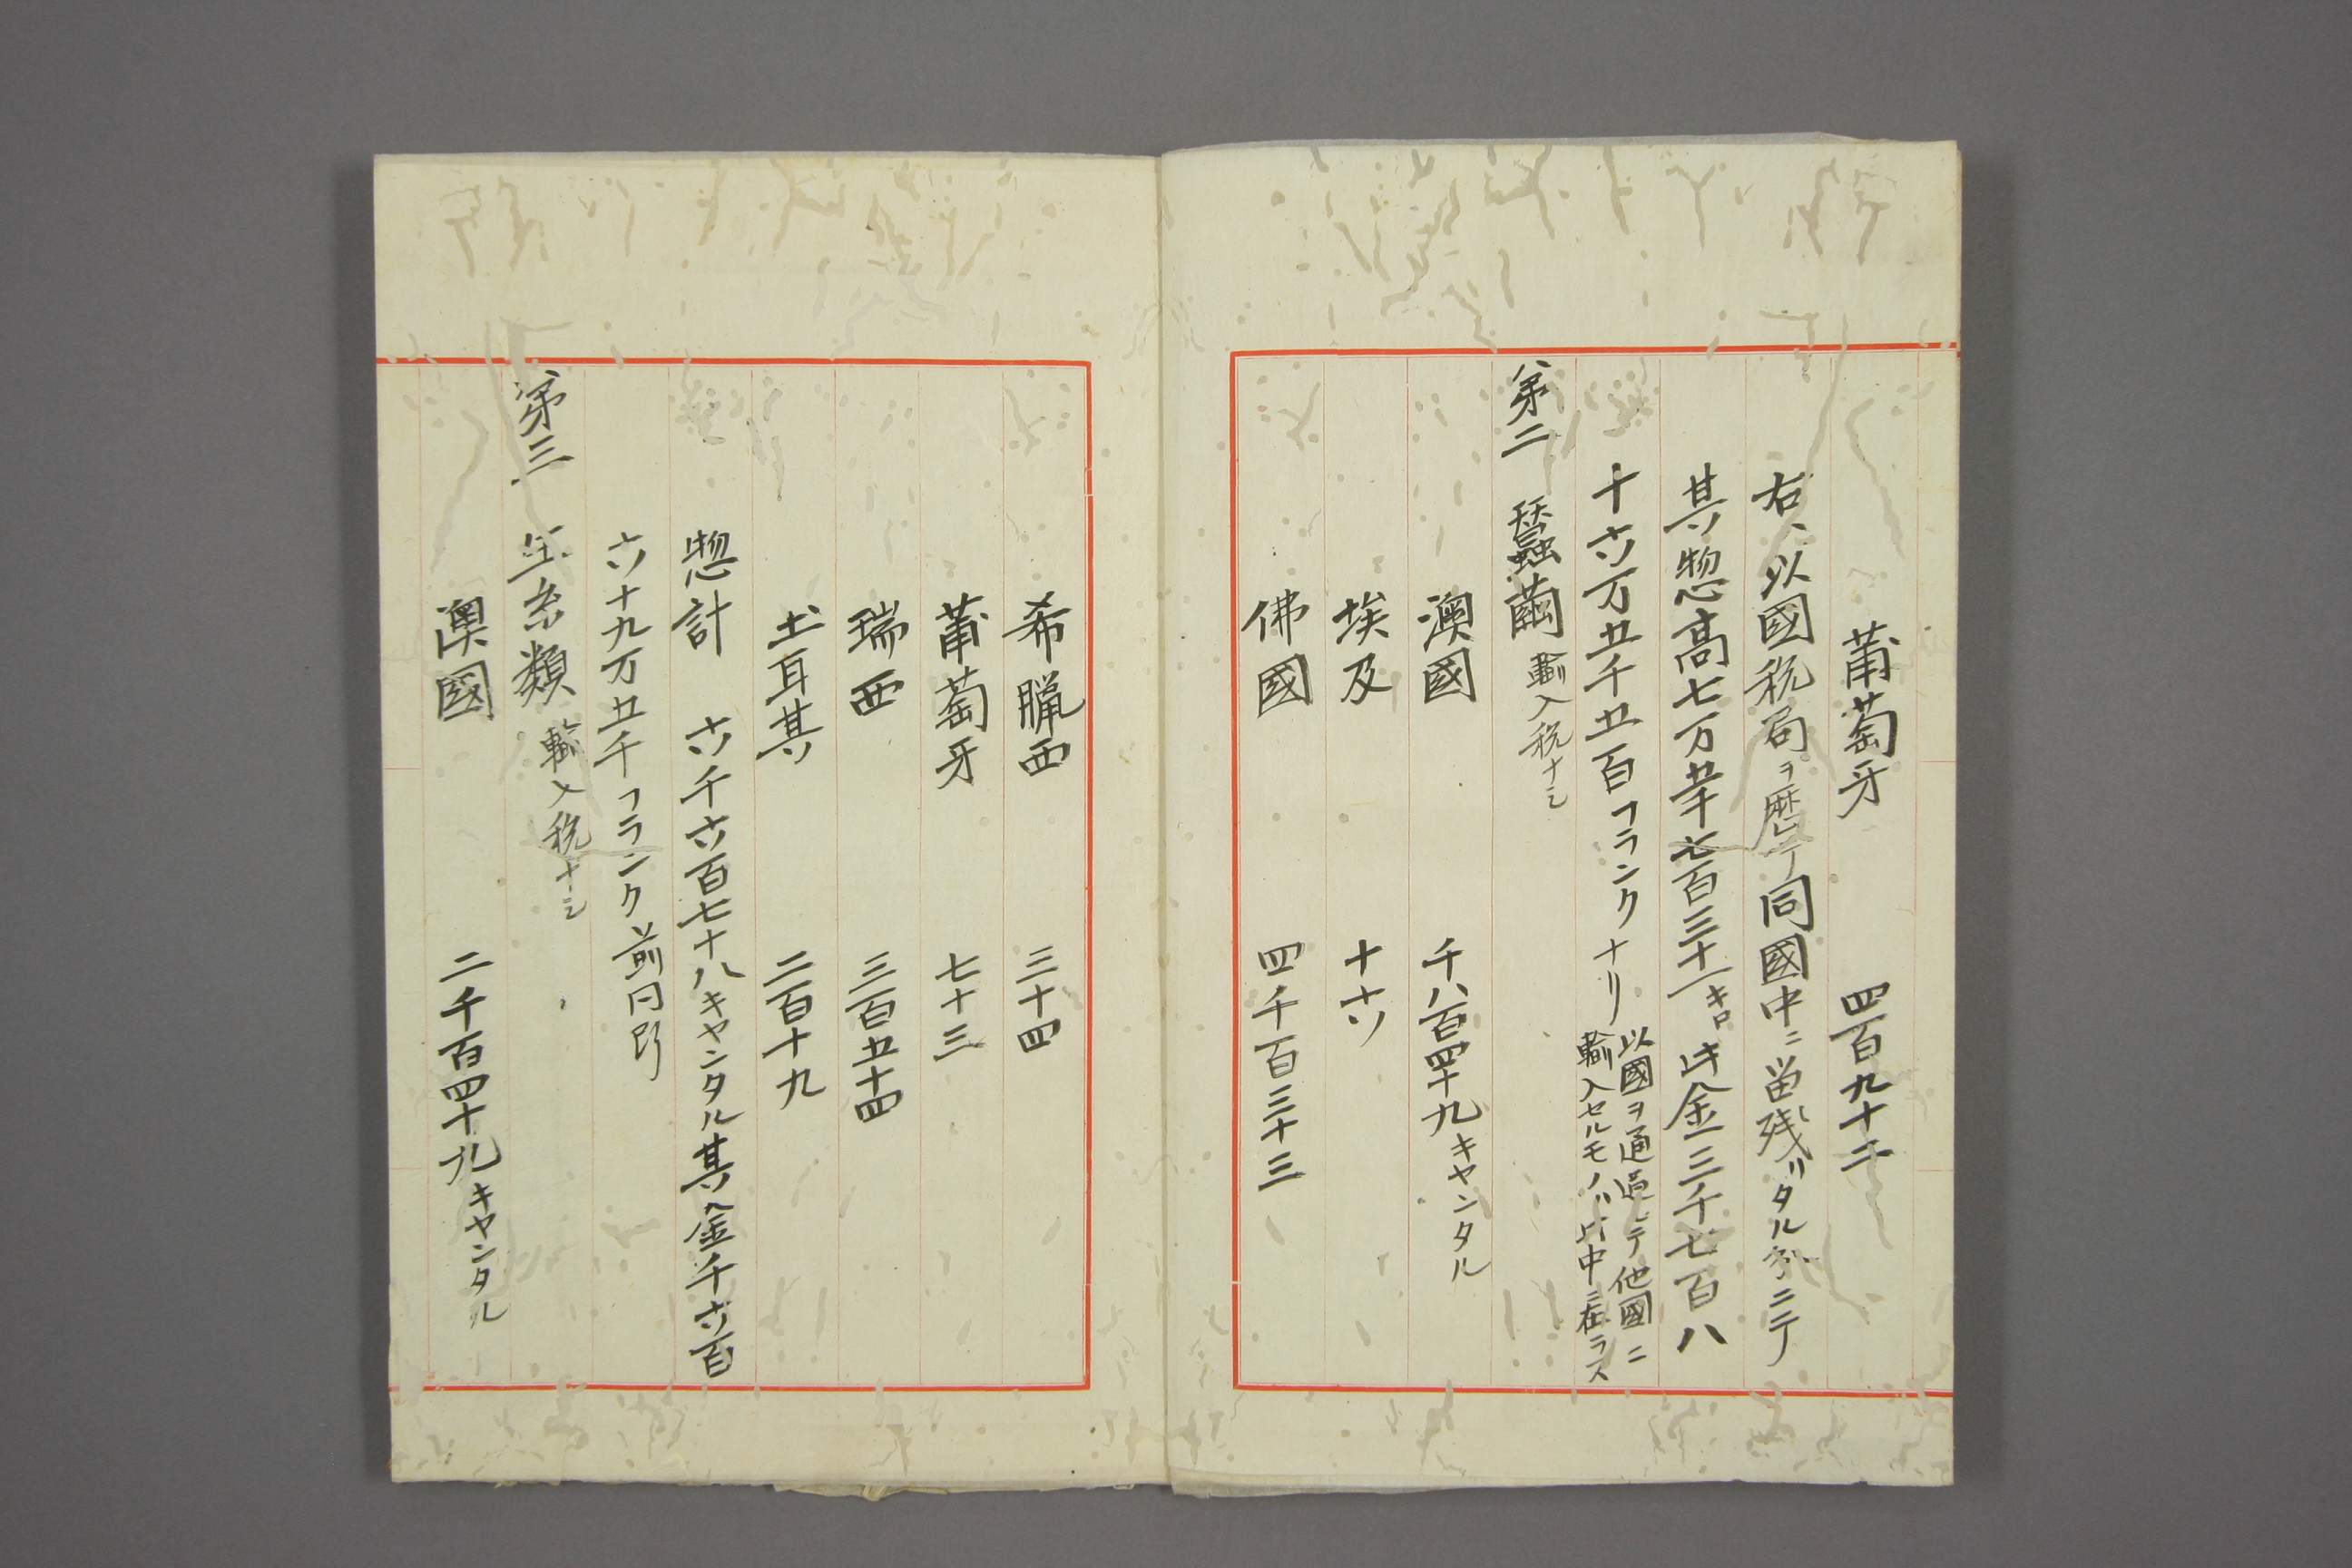 葡萄牙 四百九十二
右ハ以國税局ヲ歴テ同國中ニ留残リタル分ニテ
其惣高七万五千七百三十一キロ此金三千七百八
十六万五千五百フランクナリ
以國ヲ通過シテ他國ニ
輸入セルモノハ此中ニ在ラス
第二 蠶繭 輸入税ナシ
澳國 千八百四十九キヤンタル
埃及 十六
佛國 四千百三十三
希臘西 三十四
葡萄牙 七十三
瑞西 三百五十四
土耳其 二百十九
惣計 六千六百七十八キヤンタル其金千六百
六十九万五千フランク前同断
第三 生糸類 輸入税ナシ
澳國 二千百四十九キヤンタル